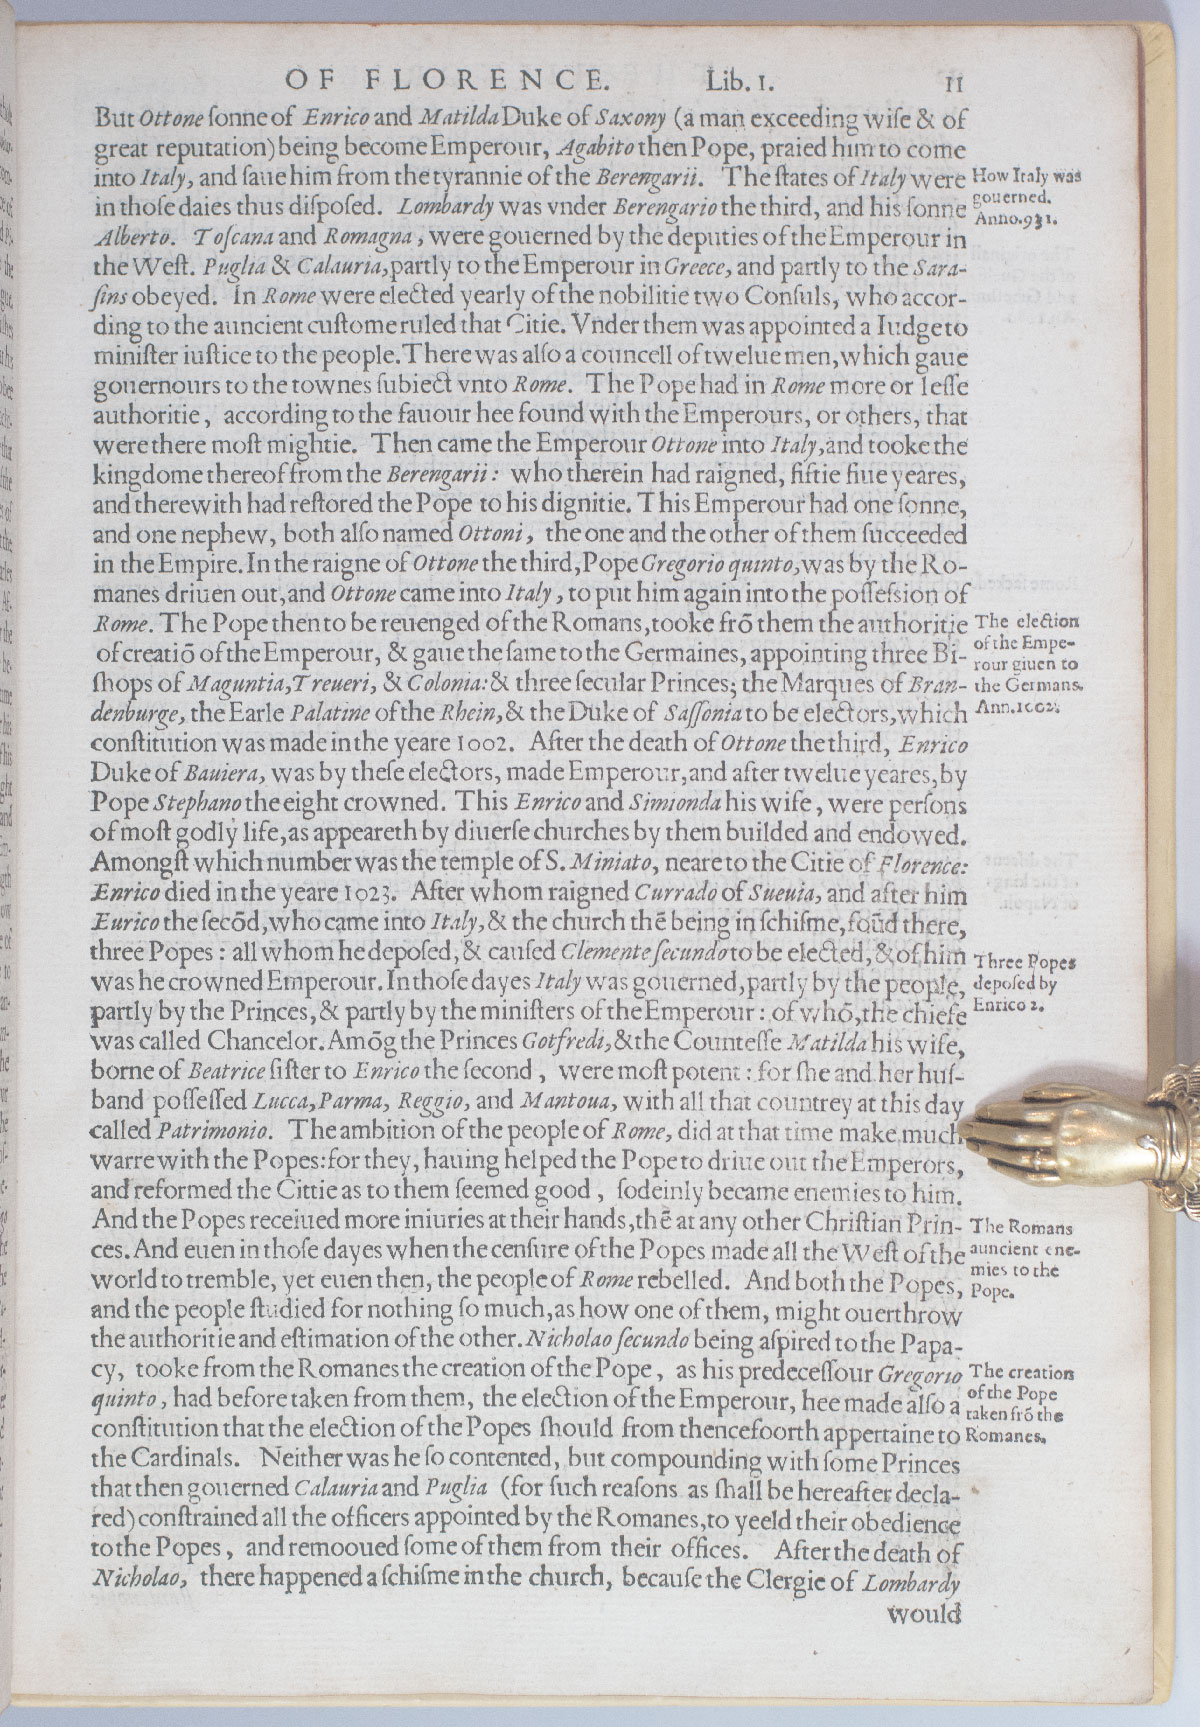 OF FLORENCE. Lib. 1. 11
But Ottone ſonne of Enrico and Matilda Duke of Saxony (a man exceeding wiſe & of
great reputation) being become Emperour, Agabito then Pope, praied him to come
into Italy, and ſaue him from the tyrannie of the Berengarii. The ſtates of Italy were
in thoſe daies thus diſpoſed. Lombardy was vnder Berengario the third, and his ſonne
Alberto. Toſcana and Romagna, were gouerned by the deputies of the Emperour in
the Weſt. Puglia & Calauria, partly to the Emperour in Greece, and partly to the Sara-
ſins obeyed. In Rome were elected yearly of the nobilitie two Conſuls, who accor-
ding to the auncient cuſtome ruled that Citie. Vnder them was appointed a Iudge to
miniſter iuſtice to the people. There was alſo a councell of twelue men, which gaue
gouernours to the townes ſubiect vnto Rome. The Pope had in Rome more or leſſe
authoritie, according to the fauour hee found with the Emperours, or others, that
were there moſt mightie. Then came the Emperour Ottone into Italy, and tooke the
kingdome thereof from the Berengarii: who therein had raigned, fiftie fiue yeares,
and therewith had reſtored the Pope to his dignitie. This Emperour had one ſonne,
and one nephew, both alſo named Ottoni, the one and the other of them ſucceeded
in the Empire. In the raigne of Ottone the third, Pope Gregorio quinto, was by the Ro-
manes driuen out, and Ottone came into Italy, to put him again into the poſſeſsion of
Rome. The Pope then to be reuenged of the Romans, tooke frō them the authoritie
of creatiō of the Emperour, & gaue the ſame to the Germaines, appointing three Bi-
ſhops of Maguntia, Treueri, & Colonia: & three ſecular Princes; the Marques of Bran-
denburge, the Earle Palatine of the Rhein, & the Duke of Saſſonia to be electors, which
conſtitution was made in the yeare 1002. After the death of Ottone the third, Enrico
Duke of Bauiera, was by theſe electors, made Emperour, and after twelue yeares, by
Pope Stephano the eight crowned. This Enrico and Simionda his wife, were perſons
of moſt godly life, as appeareth by diuerſe churches by them builded and endowed.
Amongſt which number was the temple of S. Miniato, neare to the Citie of Florence:
Enrico died in the yeare 1023. After whom raigned Currado of Sueuia, and after him
Eurico the ſecōd, who came into Italy, & the church thē being in ſchiſme, foūd there,
three Popes: all whom he depoſed, & cauſed Clemente ſecundo to be elected, & of him
was he crowned Emperour. In thoſe dayes Italy was gouerned, partly by the people,
partly by the Princes, & partly by the miniſters of the Emperour: of whō, the chiefe
was called Chancelor. Amōg the Princes Gotfredi, & the Counteſſe Matilda his wife,
borne of Beatrice ſiſter to Enrico the ſecond, were moſt potent: for ſhe and her huſ-
band poſſeſſed Lucca, Parma, Reggio, and Mantoua, with all that countrey at this day
called Patrimonio. The ambition of the people of Rome, did at that time make much
warre with the Popes: for they, hauing helped the Pope to driue out the Emperors,
and reformed the Cittie as to them ſeemed good, ſodeinly became enemies to him.
And the Popes receiued more iniuries at their hands, thē at any other Chriſtian Prin-
ces. And euen in thoſe dayes when the cenſure of the Popes made all the Weſt of the
world to tremble, yet euen then, the people of Rome rebelled. And both the Popes,
and the people ſtudied for nothing ſo much, as how one of them, might ouerthrow
the authoritie and eſtimation of the other. Nicholao ſecundo being aſpired to the Papa-
cy, tooke from the Romanes the creation of the Pope, as his predeceſſour Gregorio
quinto, had before taken from them, the election of the Emperour, hee made alſo a
conſtitution that the election of the Popes ſhould from thenceſoorth appertaine to
the Cardinals. Neither was he ſo contented, but compounding with ſome Princes
that then gouerned Calauria and Puglia (for ſuch reaſons as ſhall be hereafter decla-
red) conſtrained all the officers appointed by the Romanes, to yeeld their obedience
to the Popes, and remooued ſome of them from their offices. After the death of
Nicholao, there happened a ſchiſme in the church, becauſe the Clergie of Lombardy
would
How Italy was
gouerned.
Anno. 931.
The election
of the Empe-
rour giuen to
the Germans.
Ann. 1002.
Three Popes
depoſed by
Enrico 2.
The Romans
auncient ene-
mies to the
Pope.
The creation
of the Pope
taken frō the
Romanes.